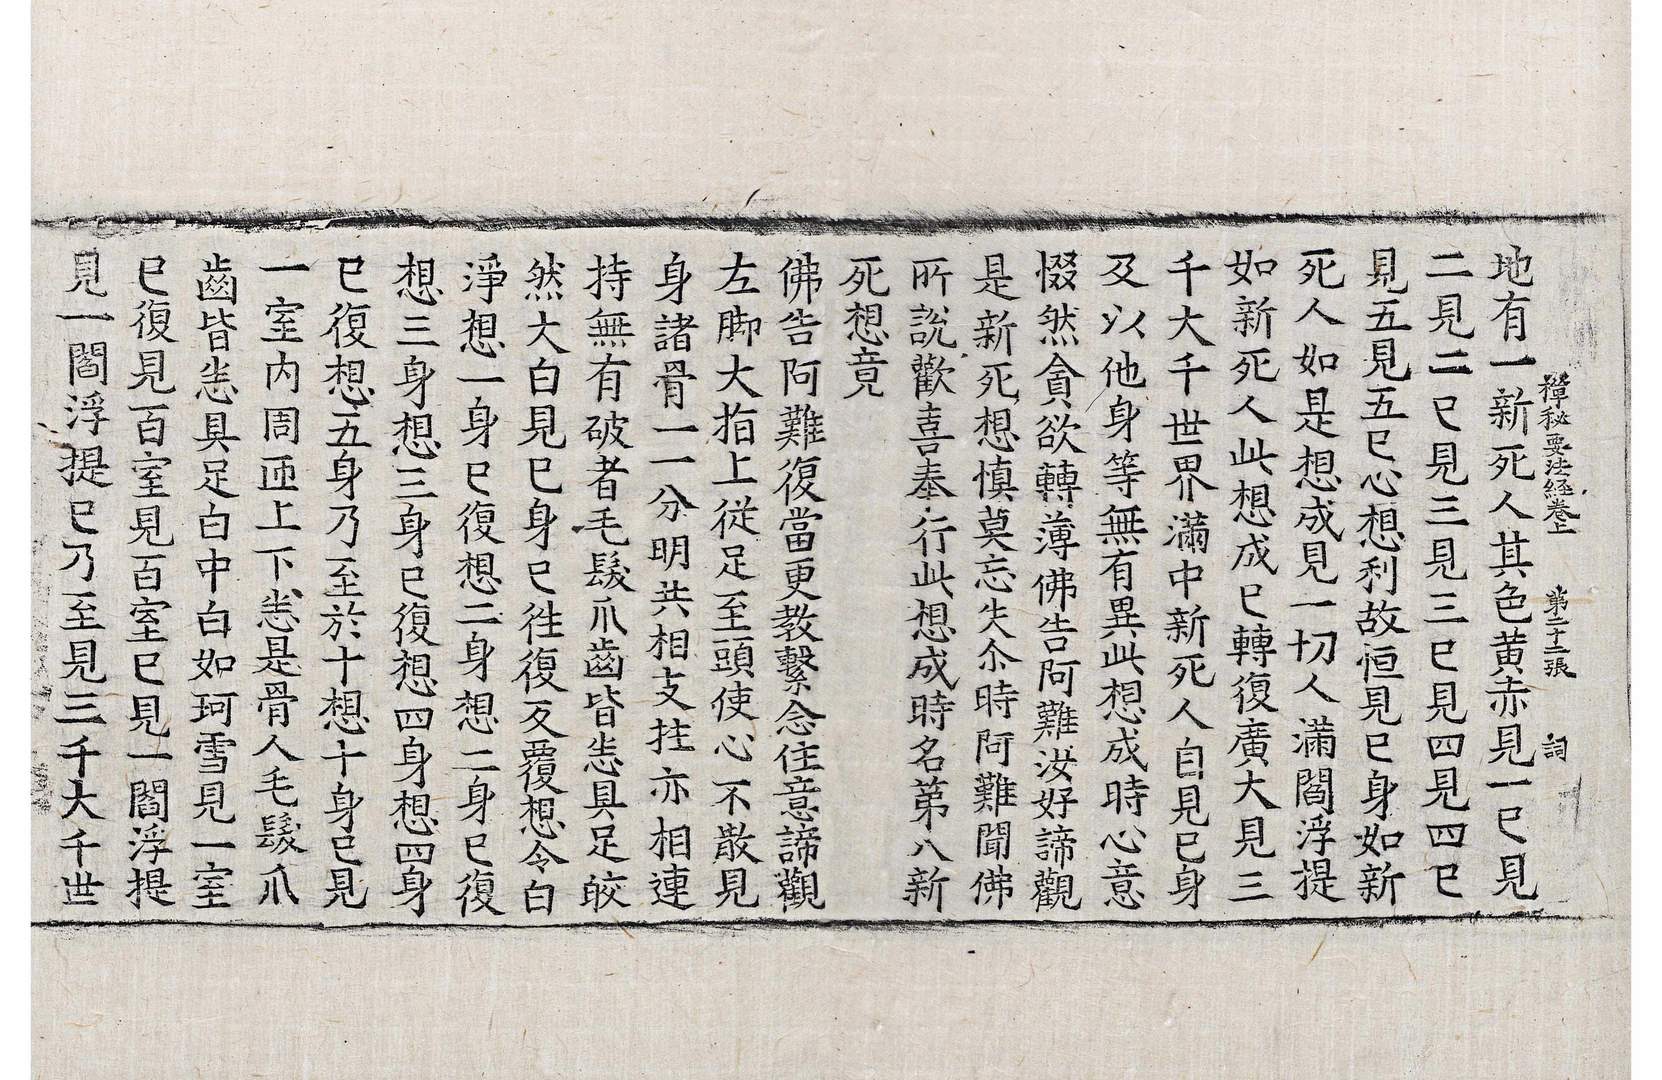 禪秘要法經卷上 第二十二張 詞
地有一新死人其色黃赤見一已見
二見二已見三見三已見四見四已
見五見五已心想利故恒見已身如新
死人如是想成見一切人滿閻浮提
如新死人此想成已轉復廣大見三
千大千世界滿中新死人自見已身
及以他身等無有異此想成時心意
惙然貪欲轉薄佛告阿難汝好諦觀
是新死想慎莫忘失尒時阿難聞佛
所說歡喜奉行此想成時名第八新
死想竟
佛告阿難復當更教繫念住意諦觀
左脚大指上從足至頭使心不散見
身諸骨一一分明共相支拄亦相連
持無有破者毛髮爪齒皆悉具足皎
然大白見已身已往復反覆想令白
淨想一身已復想二身想二身已復
想三身想三身已復想四身想四身
已復想五身乃至於十想十身已見
一室內周匝上下悉是骨人毛髮爪
齒皆悉具足白中白如珂雪見一室
已復見百室見百室已見一閻浮提
見一閻浮提已乃至見三千大千世